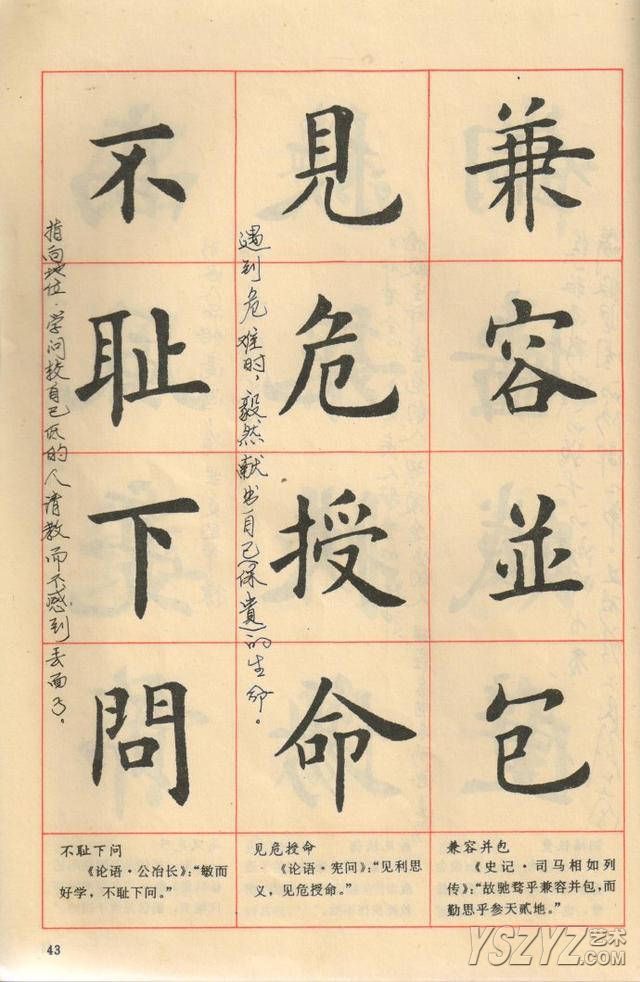 兼容並包
見危授命
遇到危难时，毅然献出自己的生命。
不耻下問
指向地位·学问较自己低的人请教而不感到丢面子。
不耻下问
《论语·公冶长》：“敏而
好学，不耻下问。”
见危授命
《论语·宪问》：“见利思
义，见危授命。”
兼容并包
《史记·司马相如列
传》：“故驰骛乎兼容并包，而
勤思乎参天贰地。”
43
YSZYZ艺术
.COM